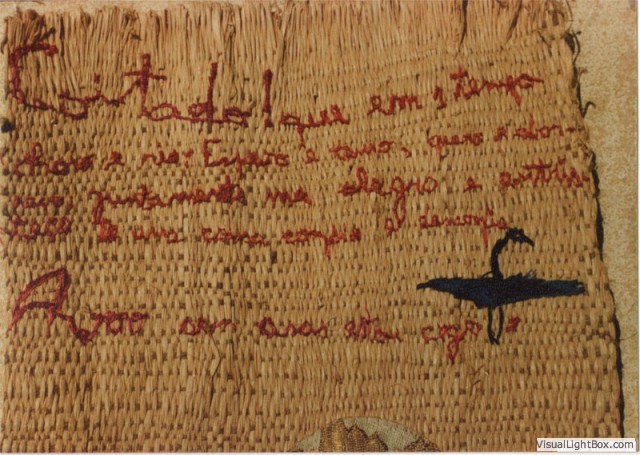 Coitado! que em 1 tempo
choro e rio: Espero e temo, quero e abor-
reço juntamente me alegro e entris-
teço de uma cousa confio e desconfio
Avoo sem asas estou cego e
VisualLightBox.com